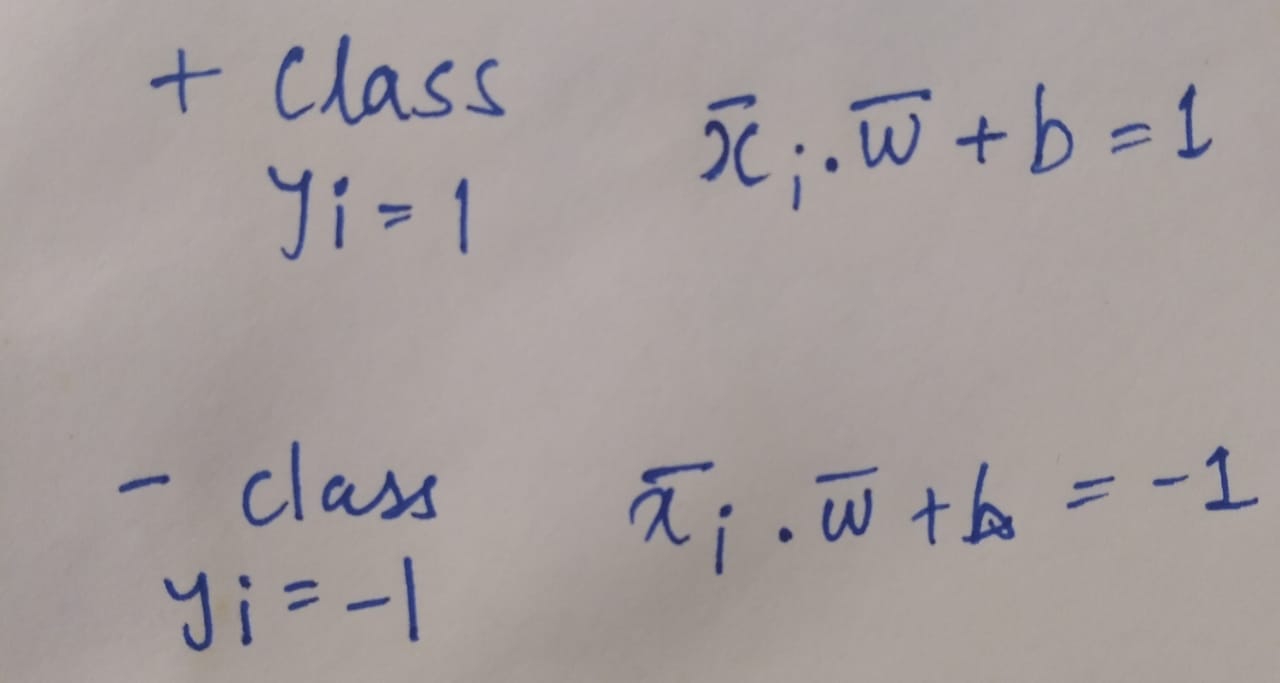 + Class
yi = 1
x̄i . w̄ + b = 1
- class
yi = -1
x̄i . w̄ + b = -1